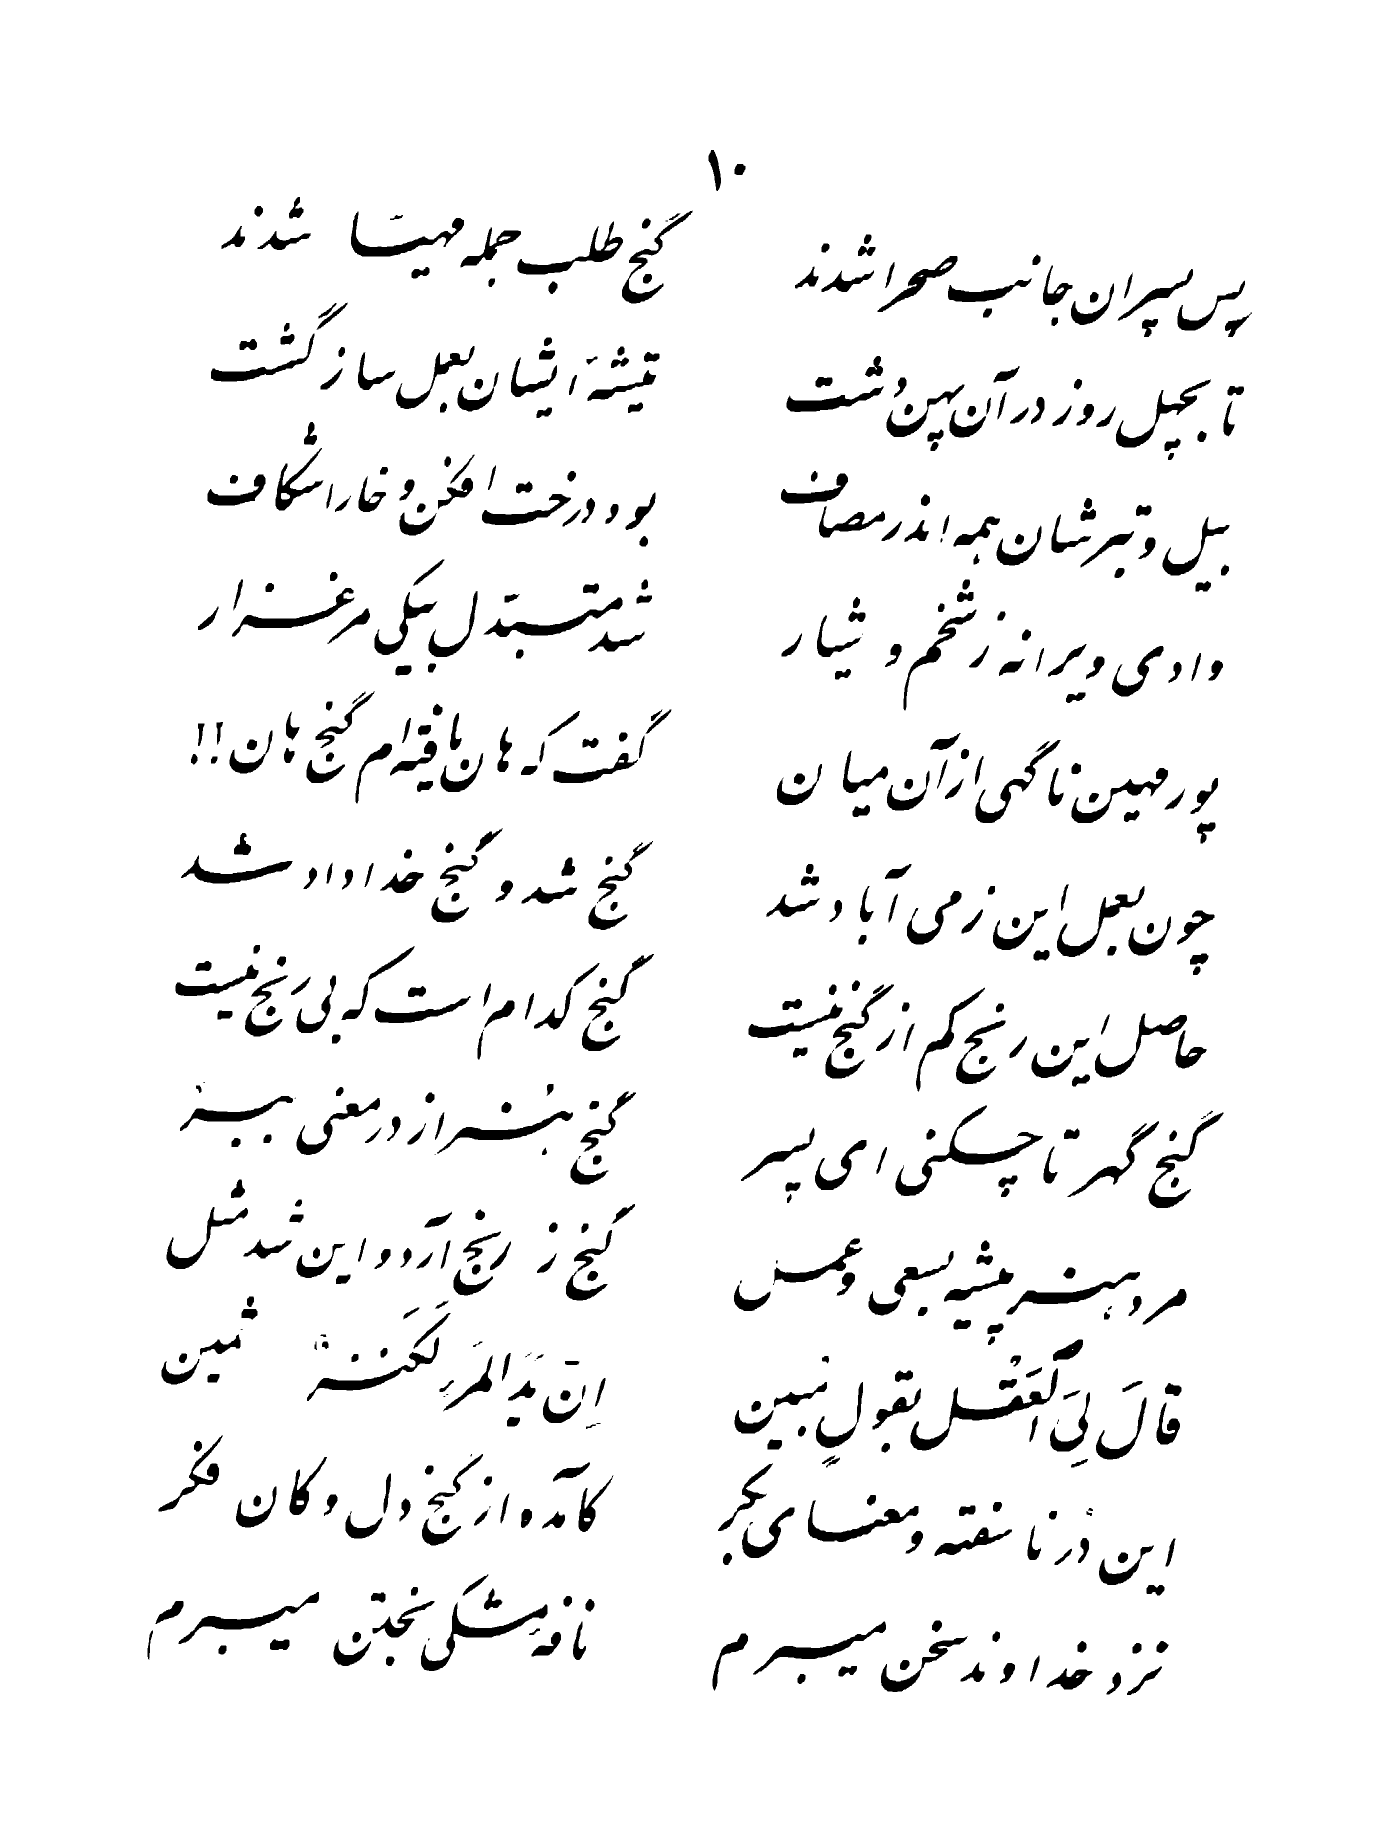 ۱۰
پس پسران جانب صحرا شدند گنج طلب جمله مهیّا شدند
تا بچهل روز در آن پهن دشت تیشهٔ ایشان بعمل ساز گشت
بیل و تبرشان همه اندر مصاف بود درخت افکن و خارا شکاف
وادی ویرانه ز شخم و شیار شد متبدّل بیکی مرغزار
پور مهین ناگهی از آن میان گفت که هان یافته‌ام گنج هان!!
چون بعمل این زمی آباد شد گنج شد و گنج خداداد شد
حاصل این رنج کم از گنج نیست گنج کدام است که بی رنج نیست
گنج گهر تا چکنی ای پسر گنج هنر از در معنی ببر
مرد هنر پیشه بسعی و عمل گنج ز رنج آرد و این شد مثل
قالَ لِیَ الْعَقْل بقولٍ مبین اِنّ یَدَ المَرءِ لَکَنزٌ ثمین
این دُر ناسفته و معنای بکر کآمده از گنج دل و کان فکر
نزد خداوند سخن میبرم نافهٔ مشکی بختن میبرم